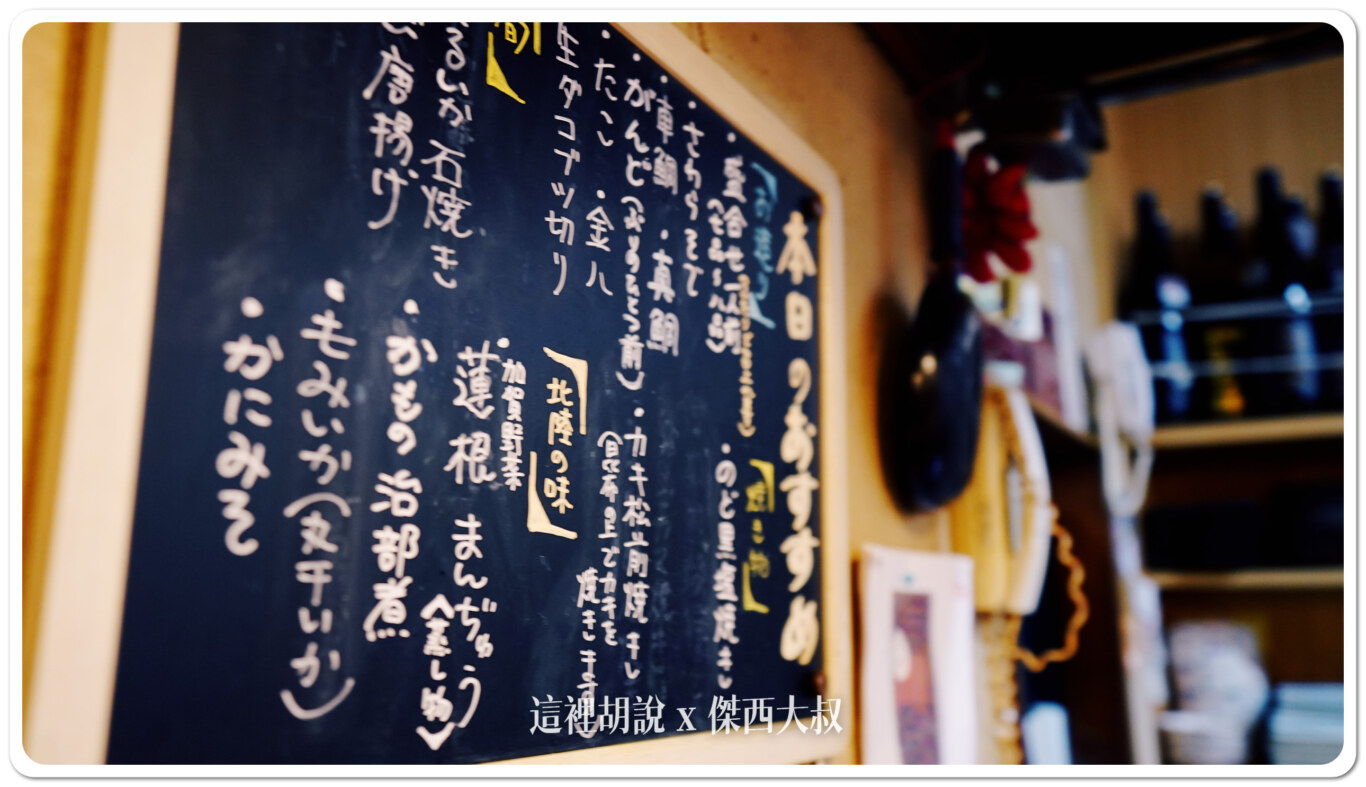 本日のおすすめ
【お造り】
・盛合せ一人前
・さわらそて
・車鯛 ・真鯛
・がんど(ぶりのひとつ前)
・たこ ・金八
生ダコブツ切り
【焼き物】
・のど黒塩焼き
・カキ松前焼き
(昆布の上でカキを
焼きます)
旬】
るいか石焼き
唐揚げ
【北陸の味】
加賀野菜
・蓮根 まんぢゅう
(蒸し物)
・かもの治部煮
・もみいか(丸干いか)
・かにみそ
這裡胡說 x 傑西大叔